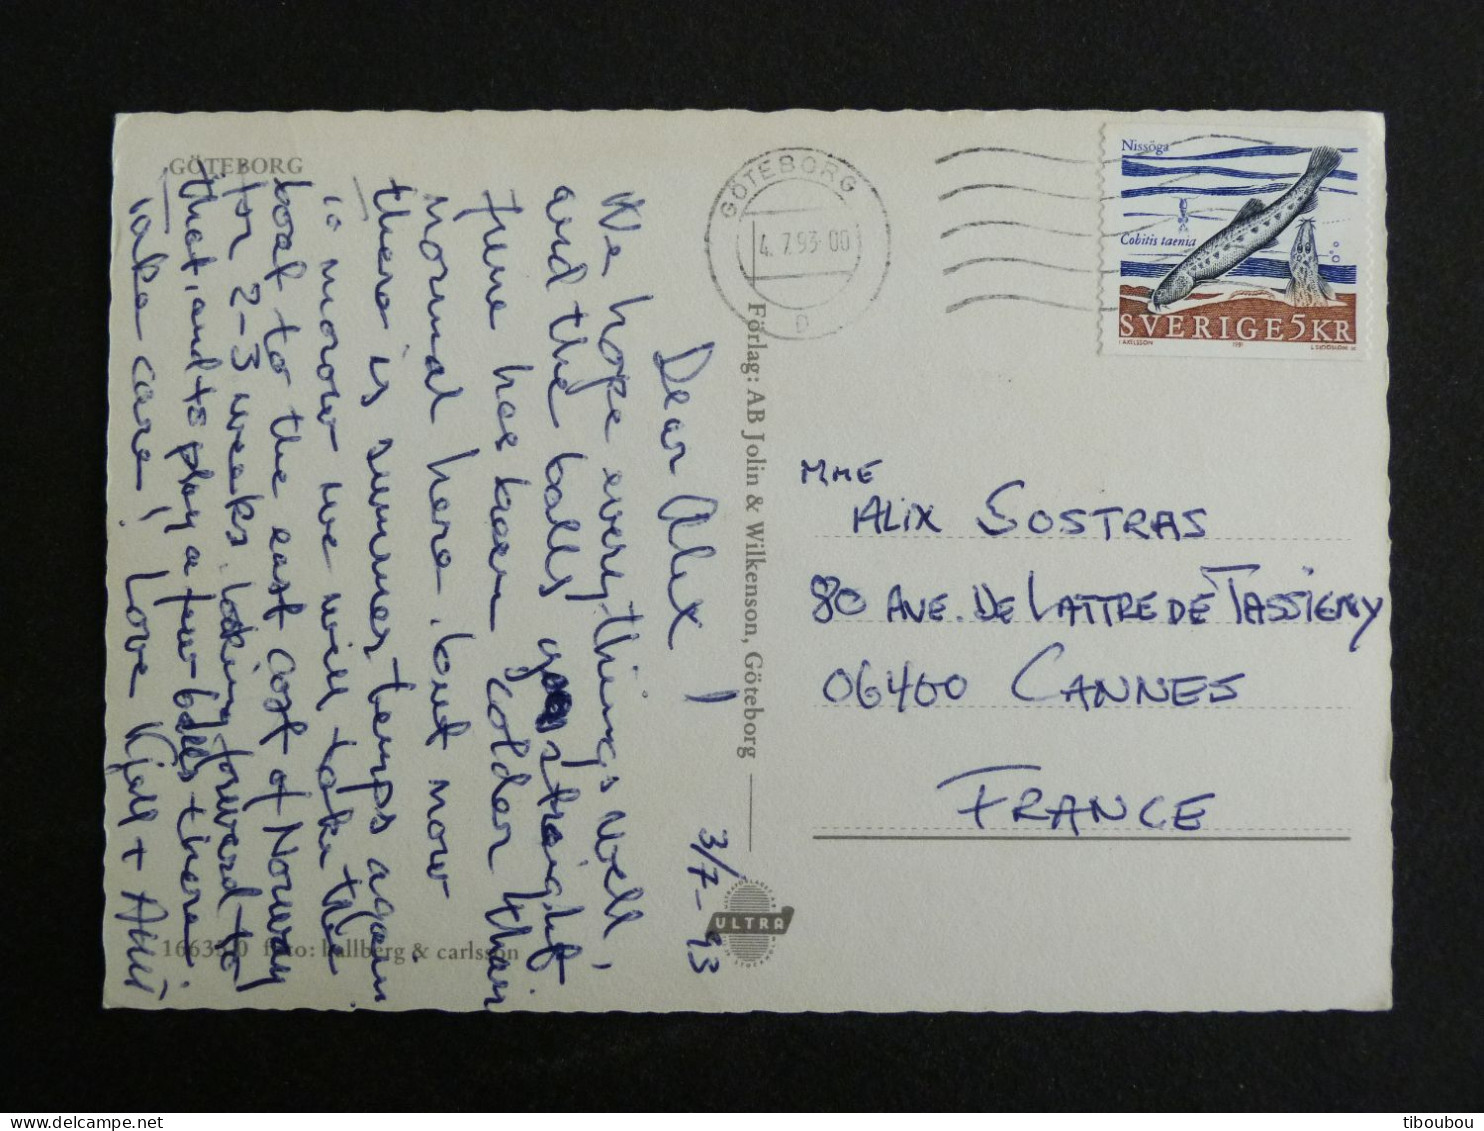 GÖTEBORG
3/7-93
Dear Alix!
We hope everythings well,
and the balls straight.
June has been colder than
normal here, but now
there is summertemps again
To morow we will take the
boat to the east cost of Norway
for 2-3 weeks. Looking forward to
that, and to play a few balls there.
Take care! Love Kjell +
166 foto: hallberg & carlsson
Förlag: AB Jolin & Wilkenson, Göteborg
ULTRA
GÖTEBORG
4.7.93-00
D
Nissöga
Cobitis taenia
SVERIGE 5KR
I AXELSSON 1991
MME
ALIX SOSTRAS
80 AVE. DE LATTRE DE TASSIGNY
06400 CANNES
FRANCE
tiboubou